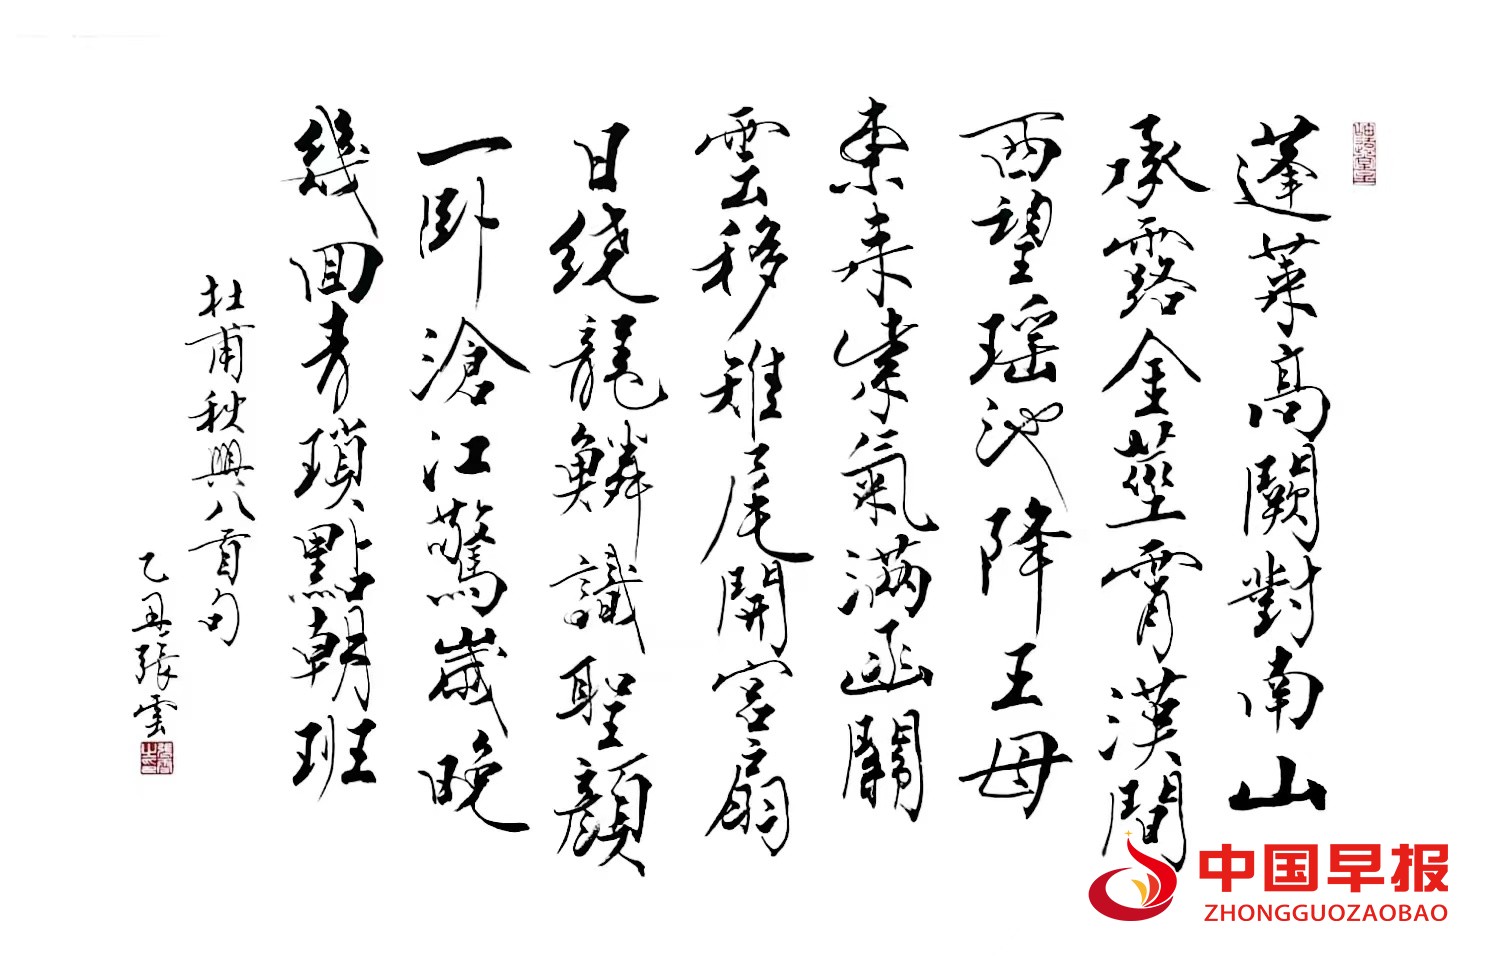 蓬莱高闕對南山
承露金莖霄漢間
西望瑶池降王母
東来紫氣满函關
雲移雉尾開宮扇
日绕龍鱗識聖顏
一卧滄江驚歲晚
幾回青瑣點朝班
杜甫秋興八首句
乙丑張雲
中国早报
ZHONGGUOZAOBAO